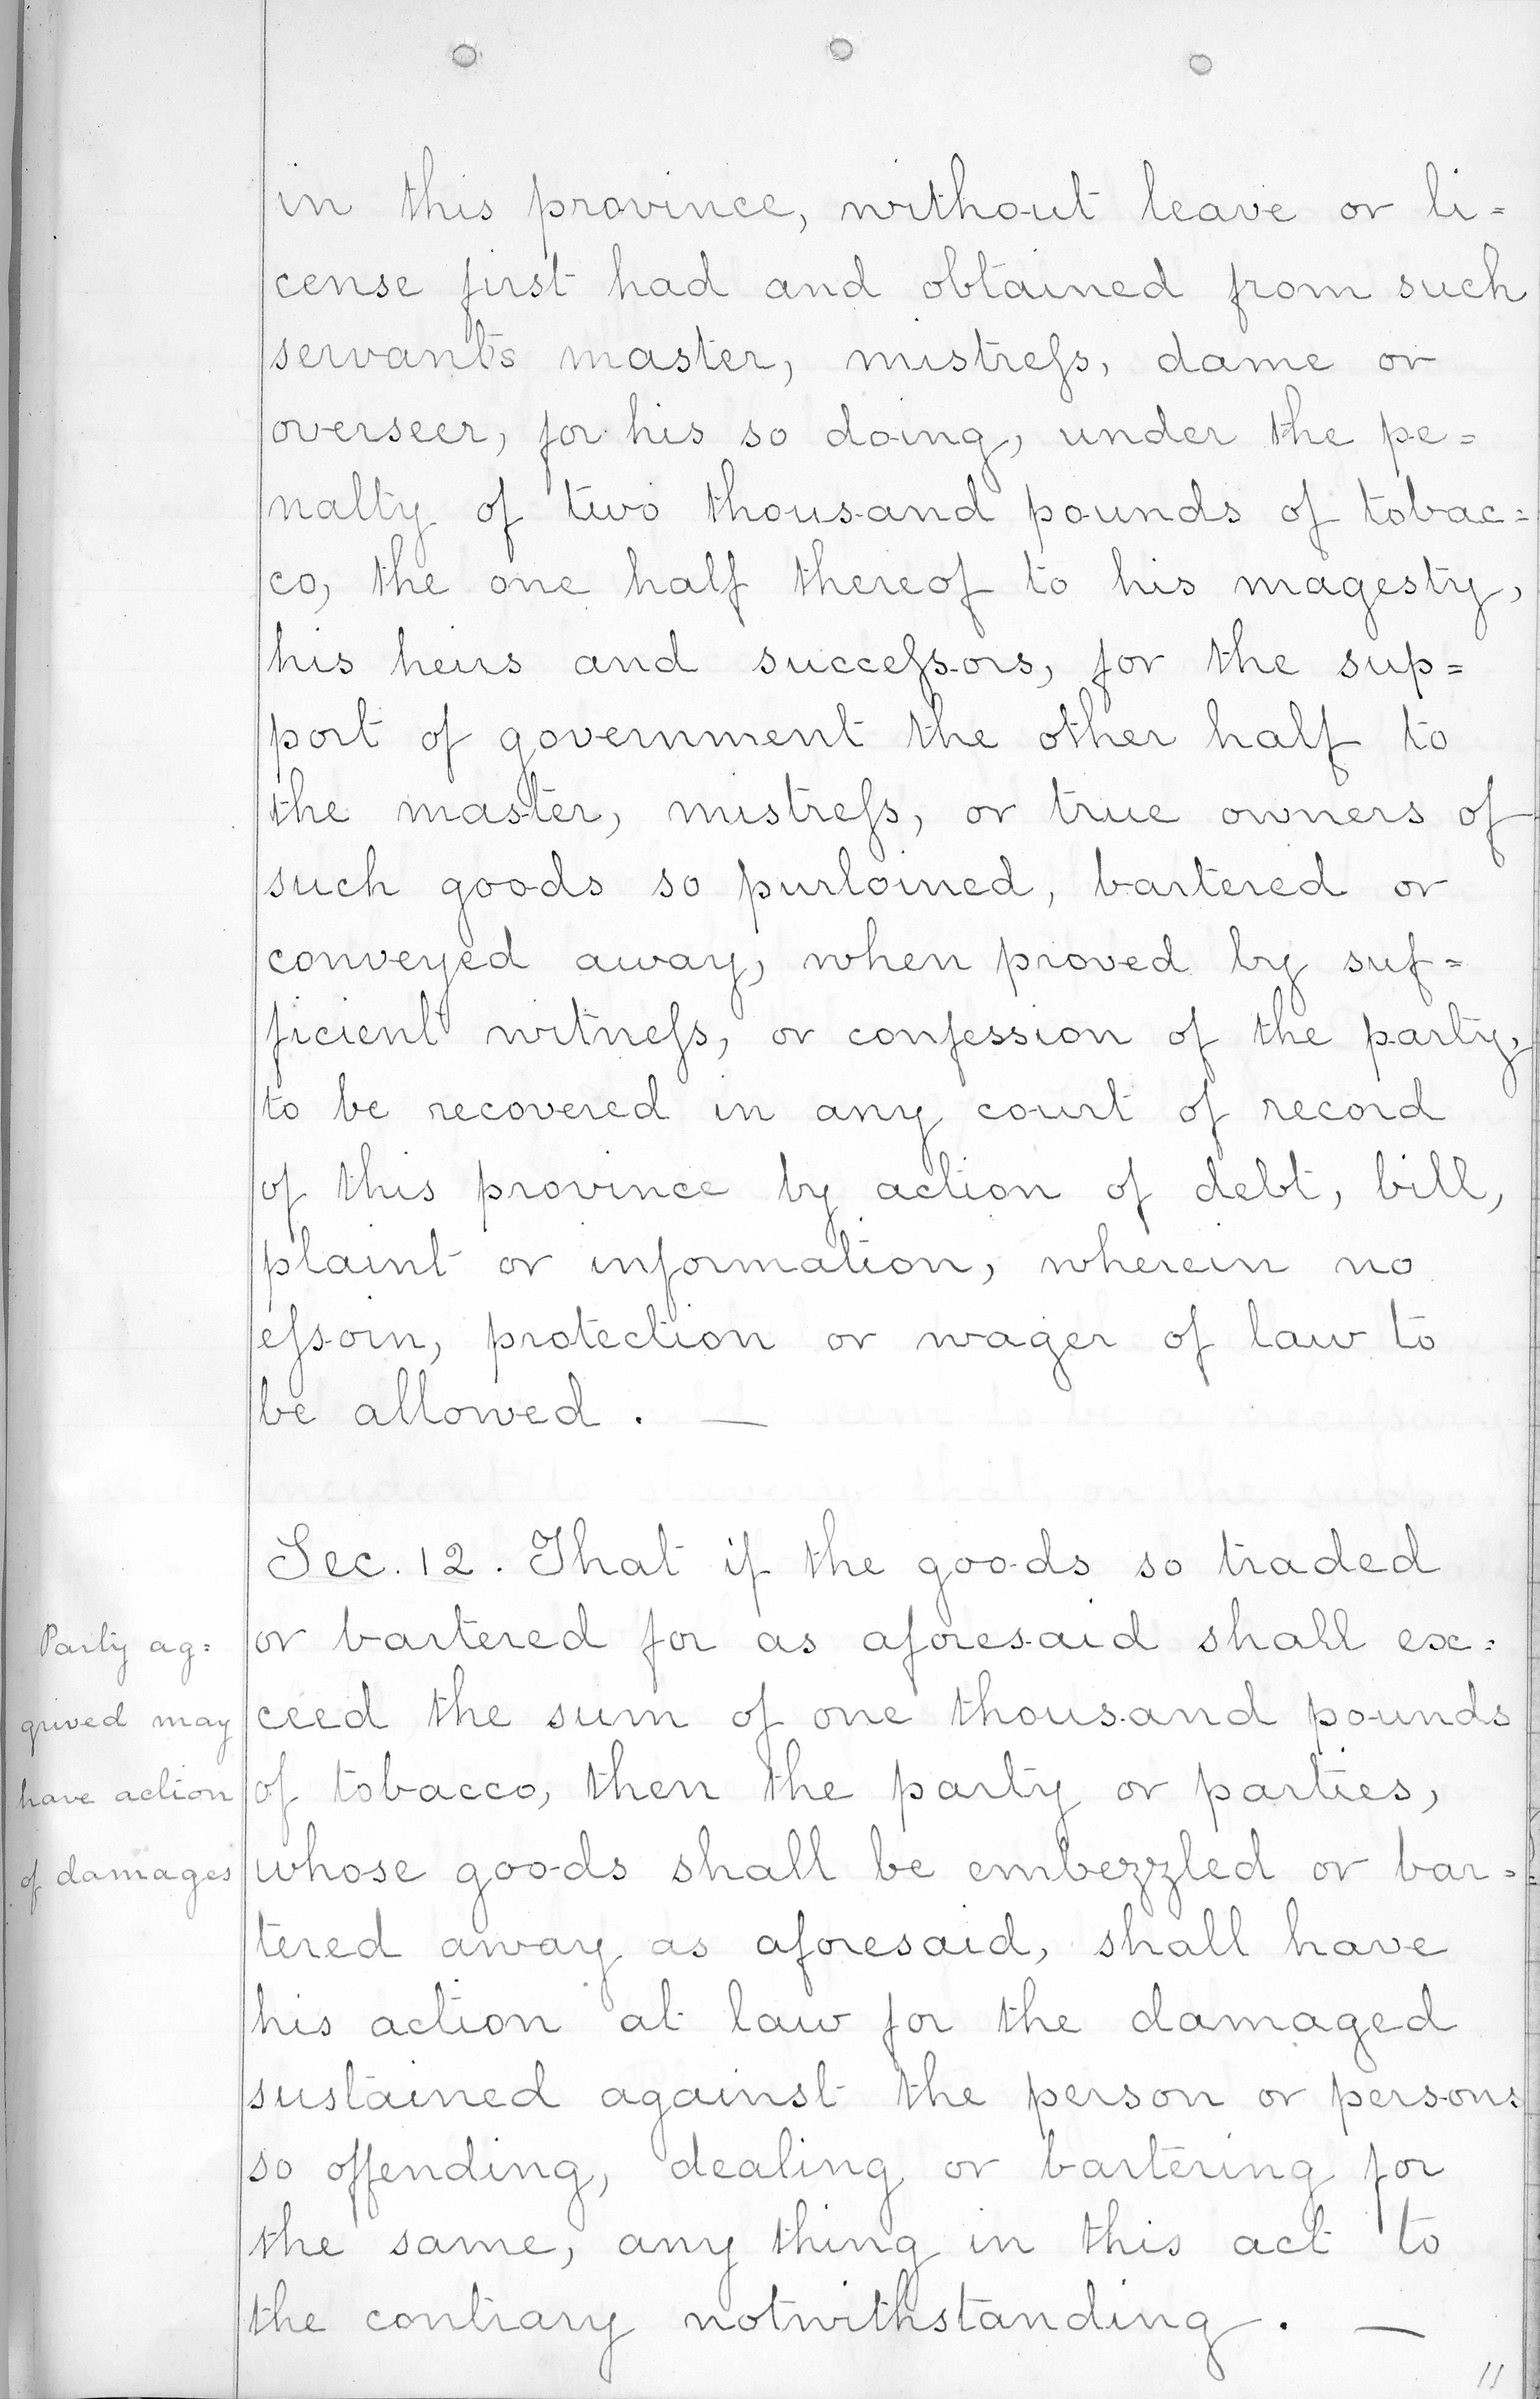 in this province, without leave or li=
cense first had and obtained from such
servants master, mistreſs, dame or
overseer, for his so doing, under the pe=
nalty of two thousand pounds of tobac=
co, the one half thereof to his magesty,
his heirs and succeſsors, for the sup=
port of government the other half to
the master, mistreſs, or true owners of
such goods so purloined, bartered or
conveyed away, when proved by suf=
ficient witneſs, or confession of the party,
to be recovered in any court of record
of this province by action of debt, bill,
plaint or information, wherein no
eſsoin, protection or wager of law to
be allowed. —
Sec. 12. That if the goods so traded
or bartered for as aforesaid shall ex=
ceed the sum of one thousand pounds
of tobacco, then the party or parties,
whose goods shall be embezzled or bar=
tered away as aforesaid, shall have
his action at law for the damaged
sustained against the person or persons
so offending, dealing or bartering for
the same, any thing in this act to
the contrary notwithstanding. —
Party ag=
grived may
have action
of damages
11